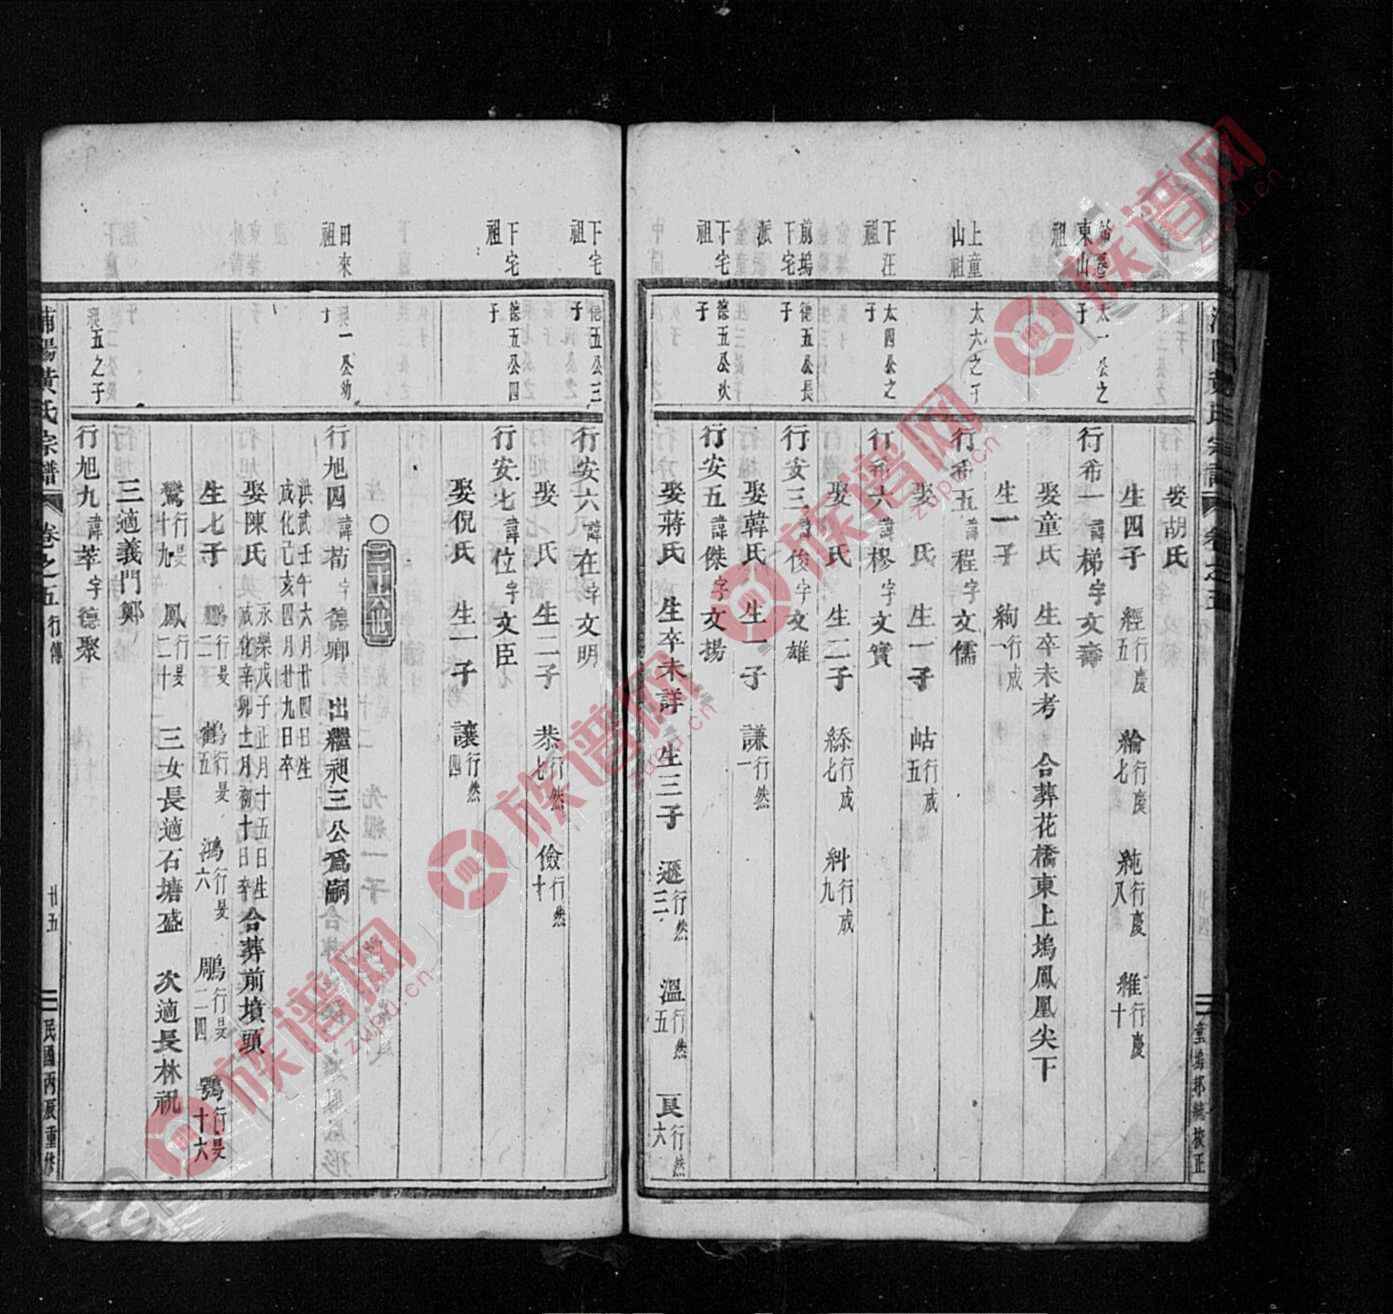 娶胡氏
生四子 經行慶五 綸行慶七 純行慶八 維行慶十
東山祖
太一公之子
行希一諱梯字文壽
娶童氏 生卒未考 合葬花橋東上塢鳳凰尖下
生一子 絢行成一
上童山祖
太六之子
行希五諱程字文儒
娶 氏 生一子 岵行成五
下汪祖
太四公之子
行希六諱樛字文實
娶 氏 生二子 綵行成七 糾行成九
前塢下宅派
德五公長子
行安三諱俊字文雄
娶韓氏 生一子 謙行然一
下宅祖
德五公次子
行安五諱傑字文揚
娶蔣氏 生卒未詳 生三子 遜行然三 溫行然五 良行然六
重塢邦織校正
下宅祖
德五公三子
行安六諱在字文明
娶 氏 生二子 恭行然七 儉行然十
下宅祖
德五公四子
行安七諱位字文臣
娶倪氏 生一子 讓行然四
田來祖
一公幼子
行旭四諱荀字德卿 出繼昶三公爲嗣
洪武壬午六月廿四日生
成化己亥四月廿九日卒
娶陳氏 永樂戊子正月十五日生
成化辛卯十二月初十日卒 合葬前墳頭
生七子 鵬行旻二 鶴行旻五 鴻行旻六 鵰行旻二四 鶚行旻十六
鸞行旻十九 鳳行旻二十 三女長適石塘盛 次適長林祝
三適義門鄭
五之子
行旭九諱萃字德聚
浦陽黃氏宗譜 卷之五 行傳 廿五 民國丙辰重修
族谱网
zupu.cn